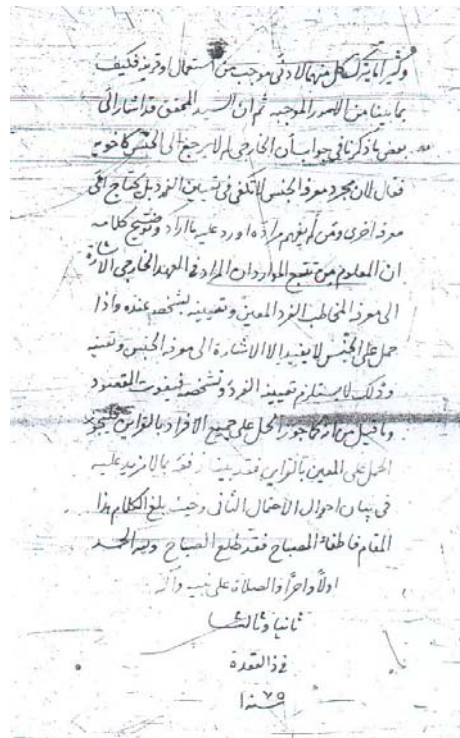 وكثيرا ما يترك كل منهما لادنى موجب من استعمال او قرينة فكيف
بما بينا من الامور الموجبة ثم ان السيد المحقق قد اشار الى
بعض ما ذكرنا في جواب ان الخارجي لم لا يرجع الى الجنس كاخويه
فقال لان مجرد معرفة الجنس لا تكفي في تعيين الفرد بل يحتاج الى
معرفة اخرى ومن لم يفهم مراده اورد عليه ما اراد وتوضيح كلامه
ان المعلوم من تتبع الموارد ان المراد في العهد الخارجي الاشارة
الى معرفة المخاطب الفرد المعين وتعيينه بشخصه عنده واذا
حمل على الجنس لا يفيد الا الاشارة الى معرفة الجنس وتعينه
وذلك لا يستلزم تعيينه الفرد وتشخصه فيفوت المقصود
وما قيل من انه كما جوز الحمل على جميع الافراد بالقراين فليجوز
الحمل على المعين بالقراين فقد بينا دفعه بما لا مزيد عليه
في بيان احوال الاحتمال الثاني وحيث بلغ الكلام هذا
المقام فاطفاء المصباح فقد طلع الصباح ولله الحمد
اولا واخرا والصلاة على نبيه وآله
ثانيا وثالثا
في ذالقعدة
سنة ١٠٧٥